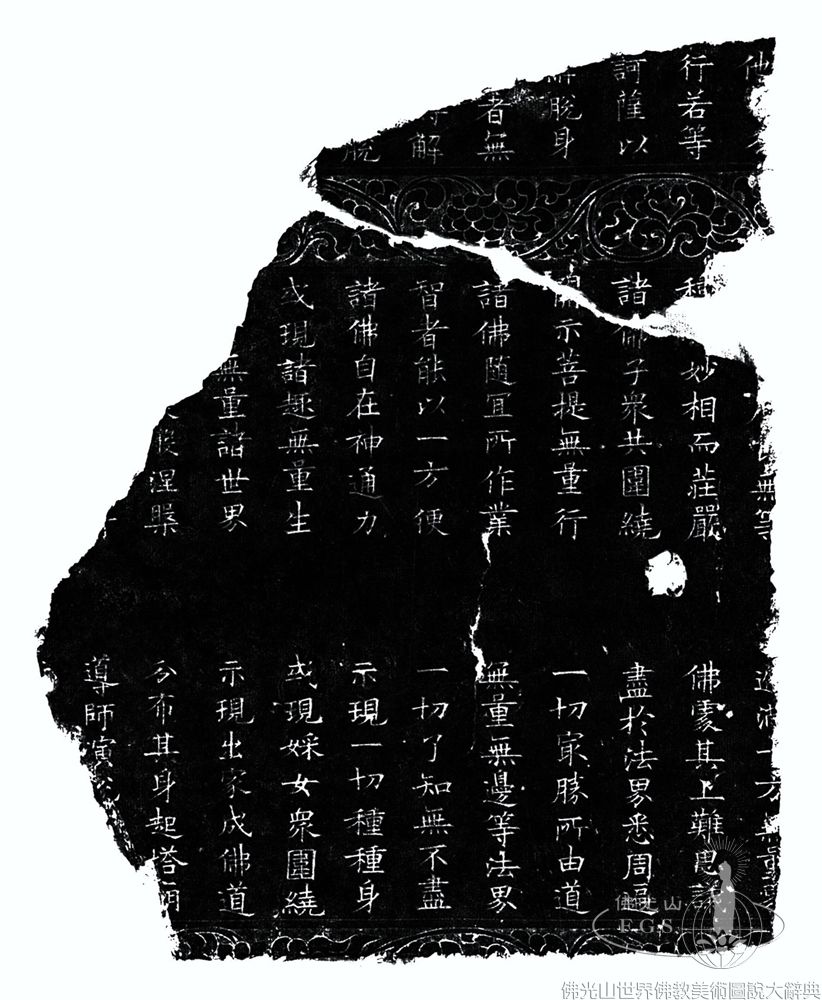 他
行若等
訶薩以
脫身
者無
解
脫
無等
種妙相而莊嚴
諸佛子衆共圍繞
開示菩提無量行
諸佛隨冝所作業
智者能以一方便
諸佛自在神通力
或現諸趣無量生
無量諸世界
般涅槃
遍滿十方無量界
佛處其上難思議
盡於法界悉周遍
一切冣勝所由道
無量無邊等法界
一切了知無不盡
示現一切種種身
或現婇女衆圍繞
示現出家成佛道
分布其身起塔廟
導師演說
佛光山
F.G.S.
佛光山世界佛教美術圖說大辭典